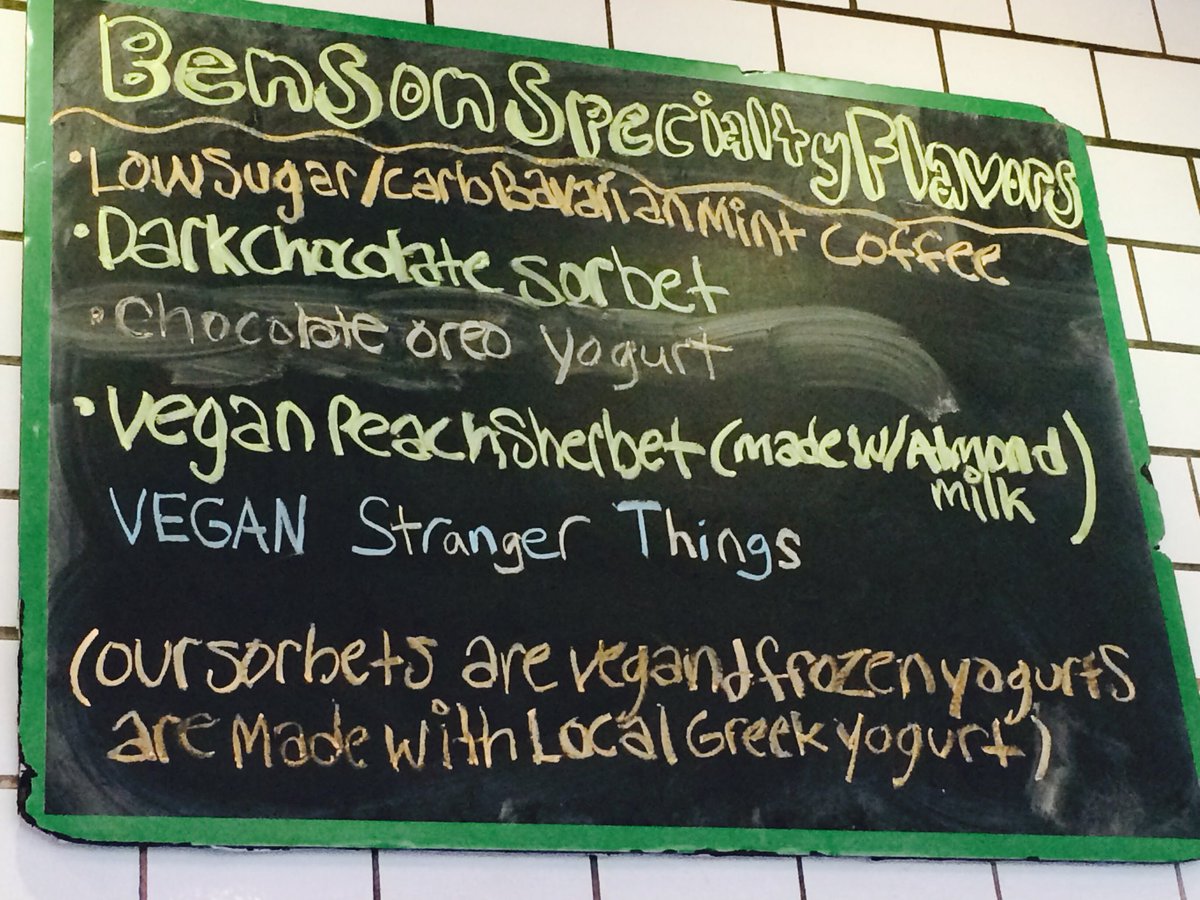 Benson Specialty Flavors
• Low Sugar/carb Bavarian Mint Coffee
• Dark Chocolate Sorbet
• Chocolate oreo yogurt
• Vegan Peach Sherbet (made w/Almond
milk)
VEGAN Stranger Things
(our sorbets are vegand frozen yogurts
are Made with Local Greek yogurt)